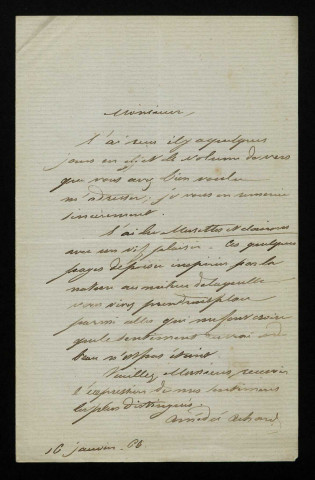 Monsieur,
J'ai reçu il y a quelques
jours en effet le volume de vers
que vous avez bien voulu
m'adresser; je vous en remercie
sincèrement.
J'ai lu Musettes et clairons
avec un vif plaisir. Ces quelques
pages de poésie inspirées par la
nature au milieu de laquelle
vous vivez prendront place
parmi celles qui me font croire
que le sentiment du vrai et du
beau n'est pas éteint.
Veuillez, Monsieur, recevoir
l'expression de mes sentiments
les plus distingués.
Amédée Achard
16 janvier